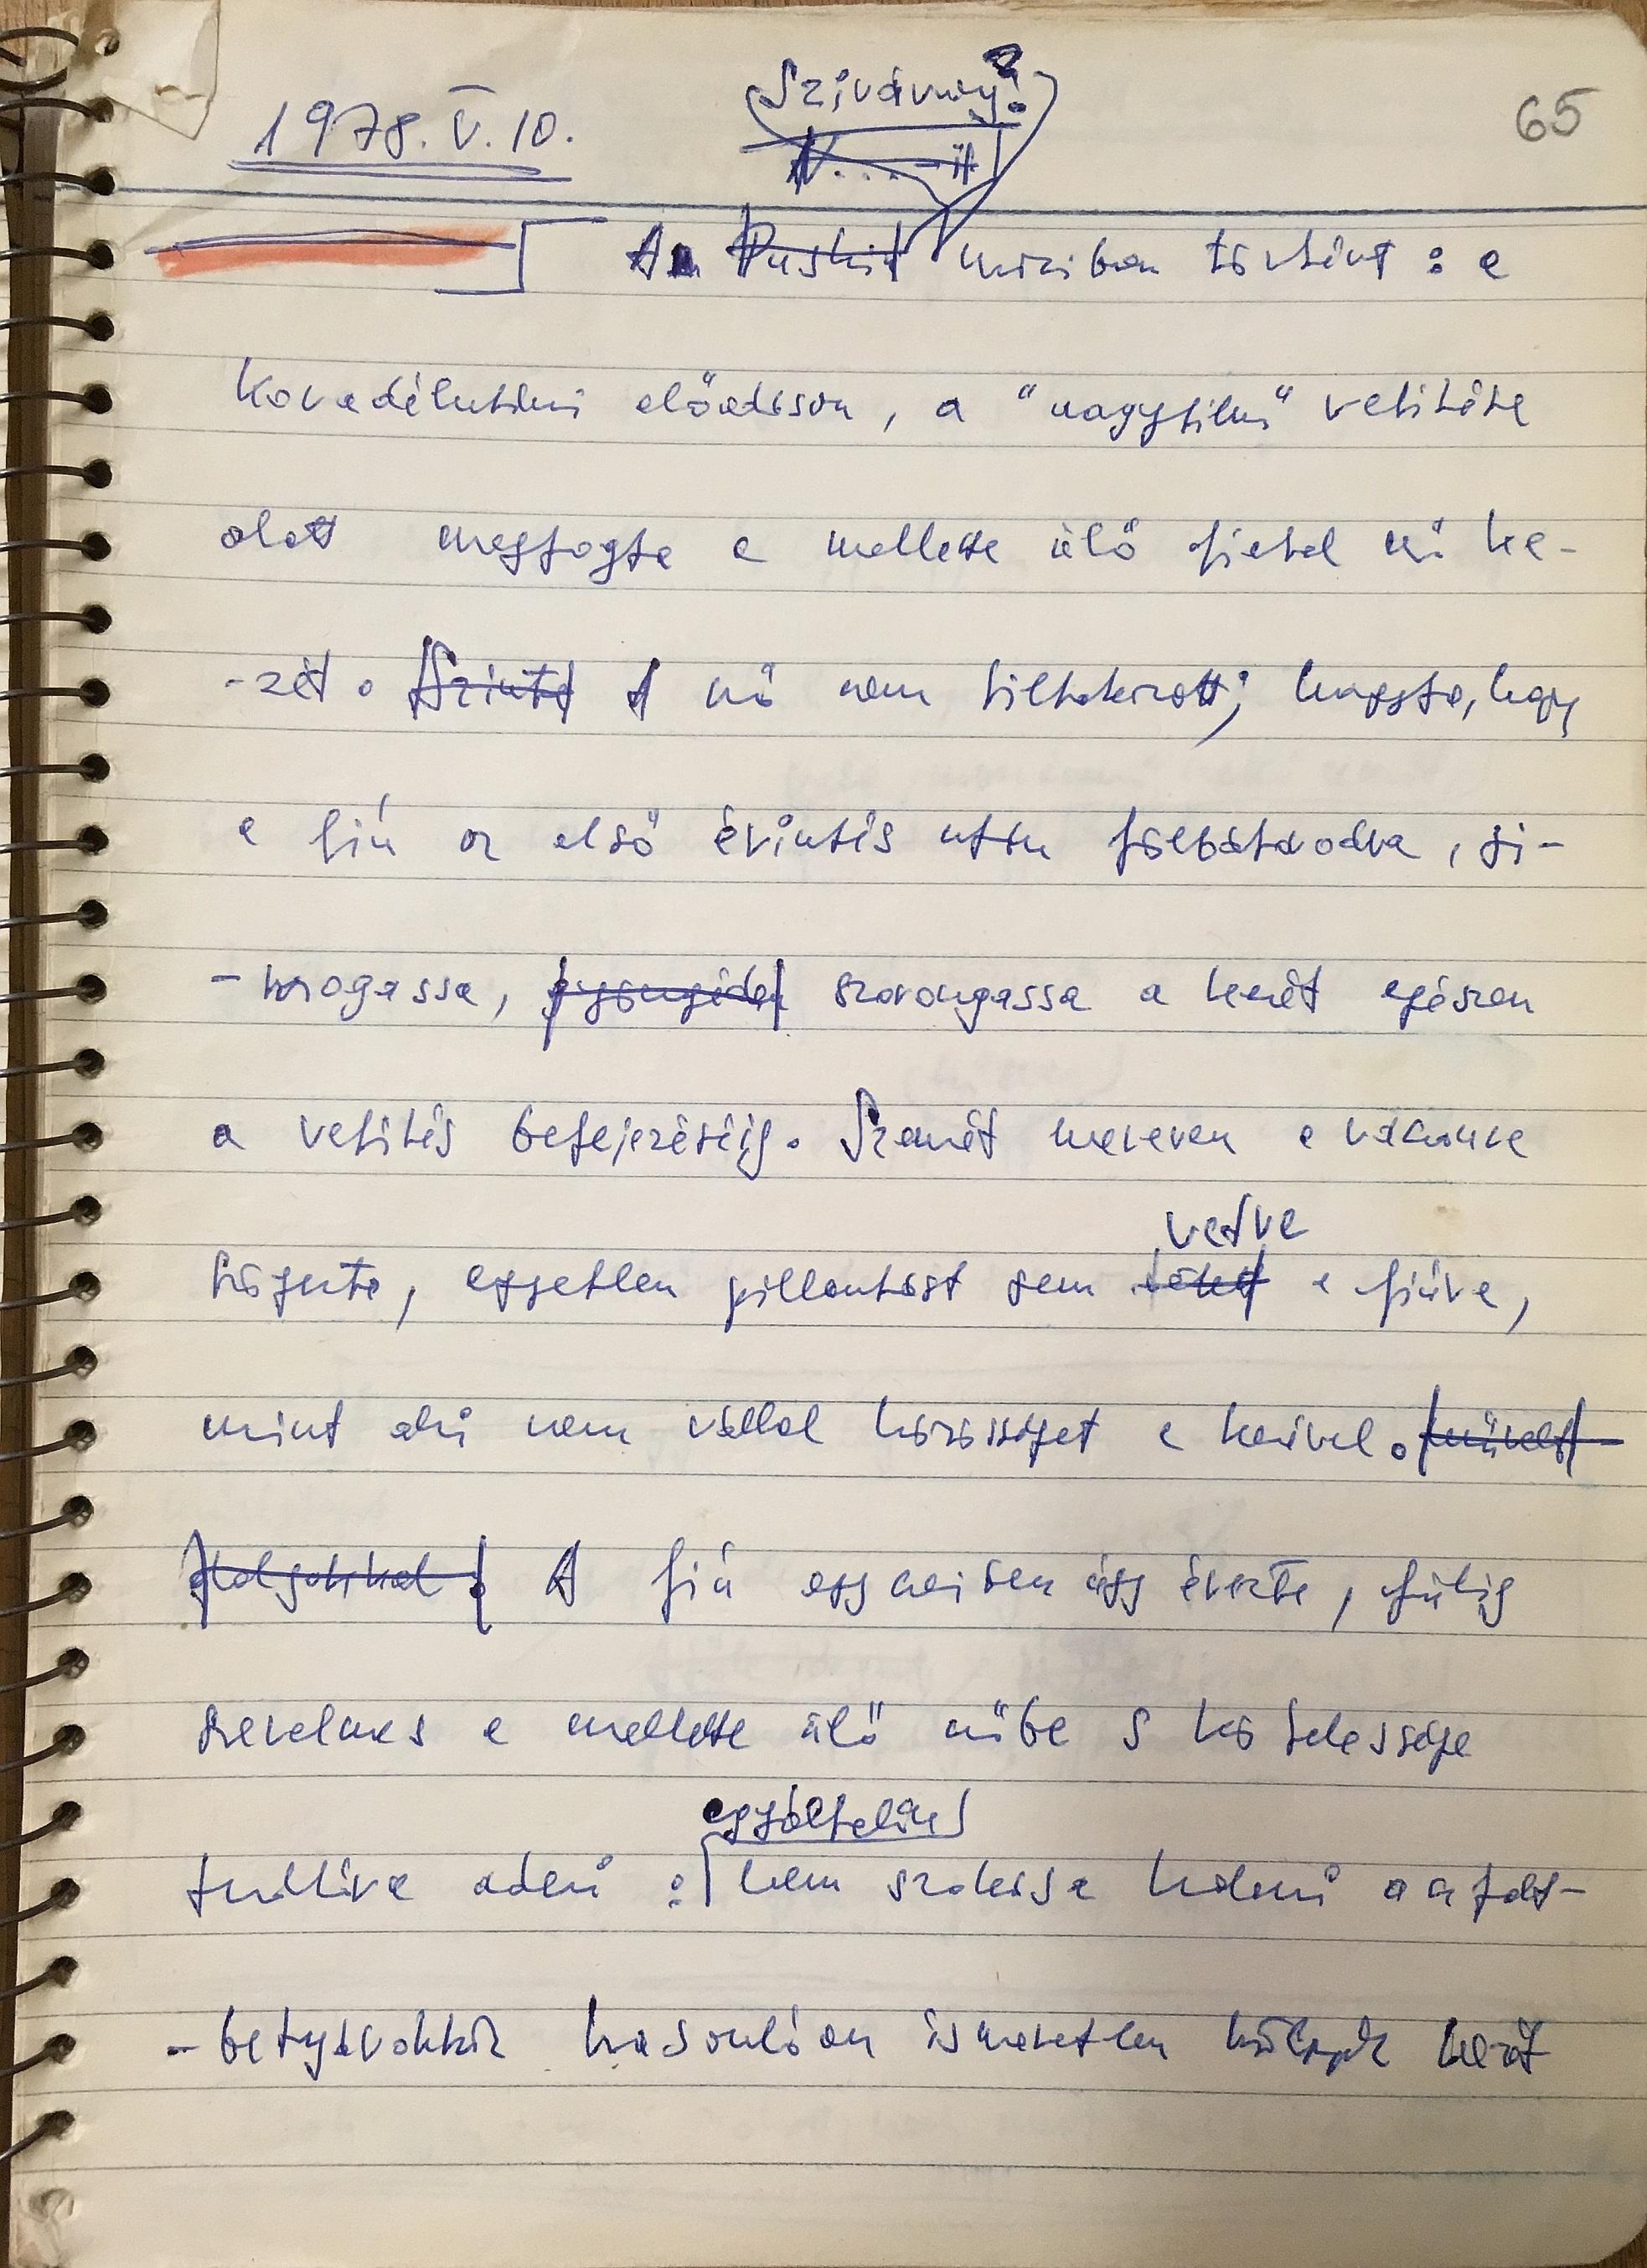 1978. V. 10.
Szivárvány?
65
A Puskin moziban történt: a
koradélutáni előadáson, a "nagyfilm" vetitése
alatt megfogta a mellette ülő fiatal nő ke-
-zét. Szinte A nő nem tiltakozott; hagyta, hogy
a fiú az első érintés után fölbátorodva, si-
-mogassa, gyöngéden szorongassa a kezét egészen
a vetités befejezéséig. Szemét mereven a vászonra
függesztve, egyetlen pillantást sem vetve a fiúra,
mint aki nem vállal közösséget a kezével.
A fiú egyszeriben úgy érezte, fülig
szerelmes a mellette ülő nőbe s kötelessége
tudtára adni: egyáltalán nem szokása holmi aafalt-
-betyárokhoz hasonlóan ismeretlen hölgyek kezét